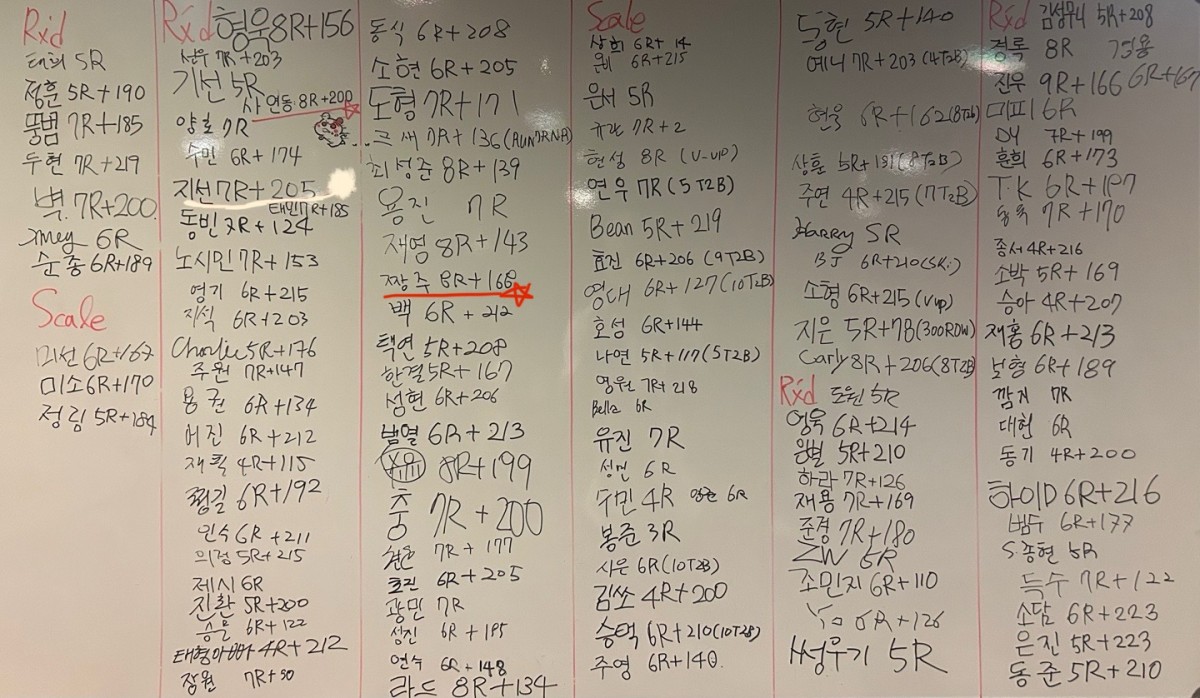 Rxd
태희 5R
정훈 5R+190
뚱범 7R+185
두현 7R+219
벽. 7R+200.
xmey 6R
순종 6R+189
Scale
미선 6R+167
미소 6R+170
정림 5R+184
Rxd 형욱 8R+156
선우 7R+203
기선 5R
사 연동 8R+200
양호 7R
수민 6R+174
지선 7R+205
태민 7R+185
동빈 7R+124
노시민 7R+153
영기 6R+215
지석 6R+203
Charlie 5R+176
주원 7R+147
용권 6R+134
어진 6R+212
재필 4R+115
쩜길 6R+192
인수 6R+211
의정 5R+215
제시 6R
진환 5R+200
승문 6R+122
태형아빠 4R+212
장원 7R+90
동식 6R+208
소현 6R+205
도형 7R+171
...크새 7R+136 (RUN7RNR)
최성준 8R+139
용진 7R
재영 8R+143
짱주 8R+168
백 6R+212
택연 5R+208
한결 5R+167
섬현 6R+206
범열 6R+213
8R+199
충 7R+200
7R+177
효진 6R+205
광민 7R
성진 6R+195
연수 6R+148
라드 8R+134
Scale
상희 6R+14
6R+215
은서 5R
규관 7R+2
현성 8R (V-up)
연우 7R (5T2B)
Bean 5R+219
효진 6R+206 (9T2B)
영대 6R+127 (10T2B)
호섬 6R+144
나연 5R+117 (5T2B)
영원 7R+218
Bella 6R
유진 7R
성민 6R
수민 4R 6R
봉준 3R
사은 6R (10T2B)
김쏘 4R+200
승억 6R+210 (10T2B)
주영 6R+140.
동현 5R+140
예니 7R+203 (4T2B)
현율 6R+162 (8T2B)
상훈 5R+191 (8T2B)
주연 4R+215 (7T2B)
Harry 5R
BJ 6R+210 (SKi)
소형 6R+215 (Vup)
지은 5R+78 (300ROW)
Carly 8R+206 (8T2B)
Rxd 도원 5R
영욱 6R+214
원별 5R+210
하라 7R+126
재용 7R+169
준경 7R+180
ZW 5R
조민지 6R+110
Yo 6R+126
H성우기 5R
Rxd 김성무니 5R+208
경록 8R 경용
진우 9R+166 6R+167
미피 6R
DY 7R+199
훈희 6R+173
T.K 6R+197
동욱 7R+170
종서 4R+216
소박 5R+169
승아 4R+207
재홍 6R+213
보형 6R+189
깜지 7R
대현 6R
동기 4R+200
하이D 6R+216
범수 6R+177
S.종현 5R
득수 7R+122
소담 6R+223
은진 5R+223
동준 5R+210